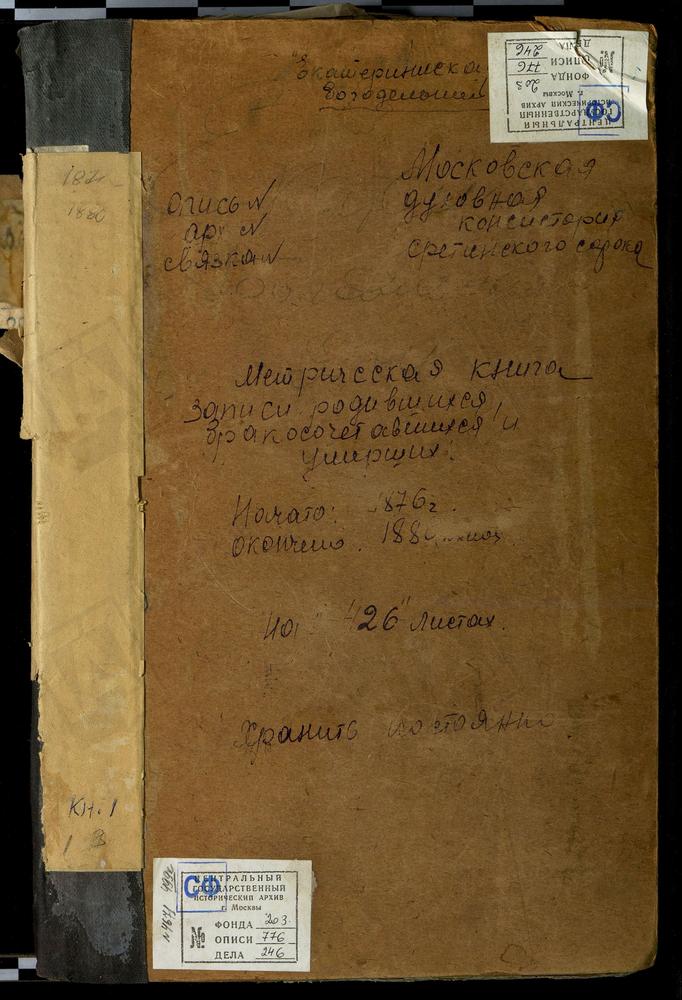 "Екатерининско
Богодельни
ЦЕНТРАЛЬНЫЙ
ГОСУДАРСТВЕННЫЙ
ИСТОРИЧЕСКИЙ АРХИВ
г. Москвы
СФ
№
ФОНДА 203
ОПИСИ 776
ДЕЛА 246
187
1880
опись №
арх №
связка №
Московская
духовная
консистория
Сретинского сорока
Метрическая книга
записи родившихся,
бракосочетавшихся и
умерших.
Начато: 1876 г.
окончено. 188
На "426" листах.
Хранить постоянно
Кн. 1
1 3
СФ
ЦЕНТРАЛЬНЫЙ
ГОСУДАРСТВЕННЫЙ
ИСТОРИЧЕСКИЙ АРХИВ
г. Москвы
№
ФОНДА 203.
ОПИСИ 776
ДЕЛА 246